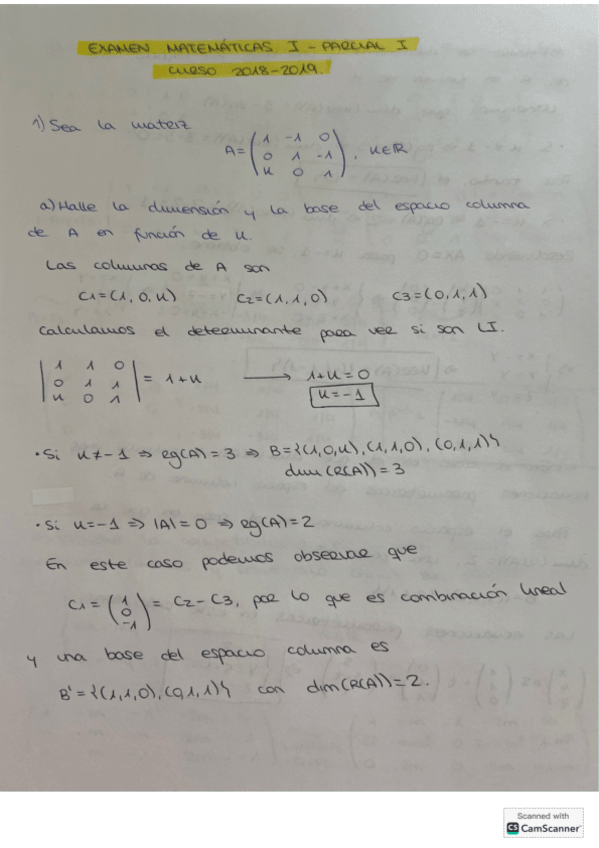 EXAMEN MATEMÁTICAS I - PARCIAL I
CURSO 2018-2019.
1) Sea la matriz
A = ( 1 -1 0
0 1 -1
k 0 1 ) , k∈ℝ
a) Halle la dimensión y la base del espacio columna
de A en función de k.
Las columnas de A son
C1=(1,0,k) C2=(1,1,0) C3=(0,1,1)
Calculamos el determinante para ver si son LI.
| 1 1 0 |
| 0 1 1 | = 1+k ⟶ 1+k=0
| k 0 1 | k=-1
• Si k≠-1 ⇒ rg(A)=3 ⇒ B={(1,0,k),(1,1,0),(0,1,1)}
dim(R(A))=3
• Si k=-1 ⇒ |A|=0 ⇒ rg(A)=2
En este caso podemos observar que
C1 = ( 1
0
-1 ) = C2-C3, por lo que es combinación lineal
y una base del espacio columna es
B'={(1,1,0),(0,1,1)} con dim(R(A))=2.
Scanned with
CS CamScanner